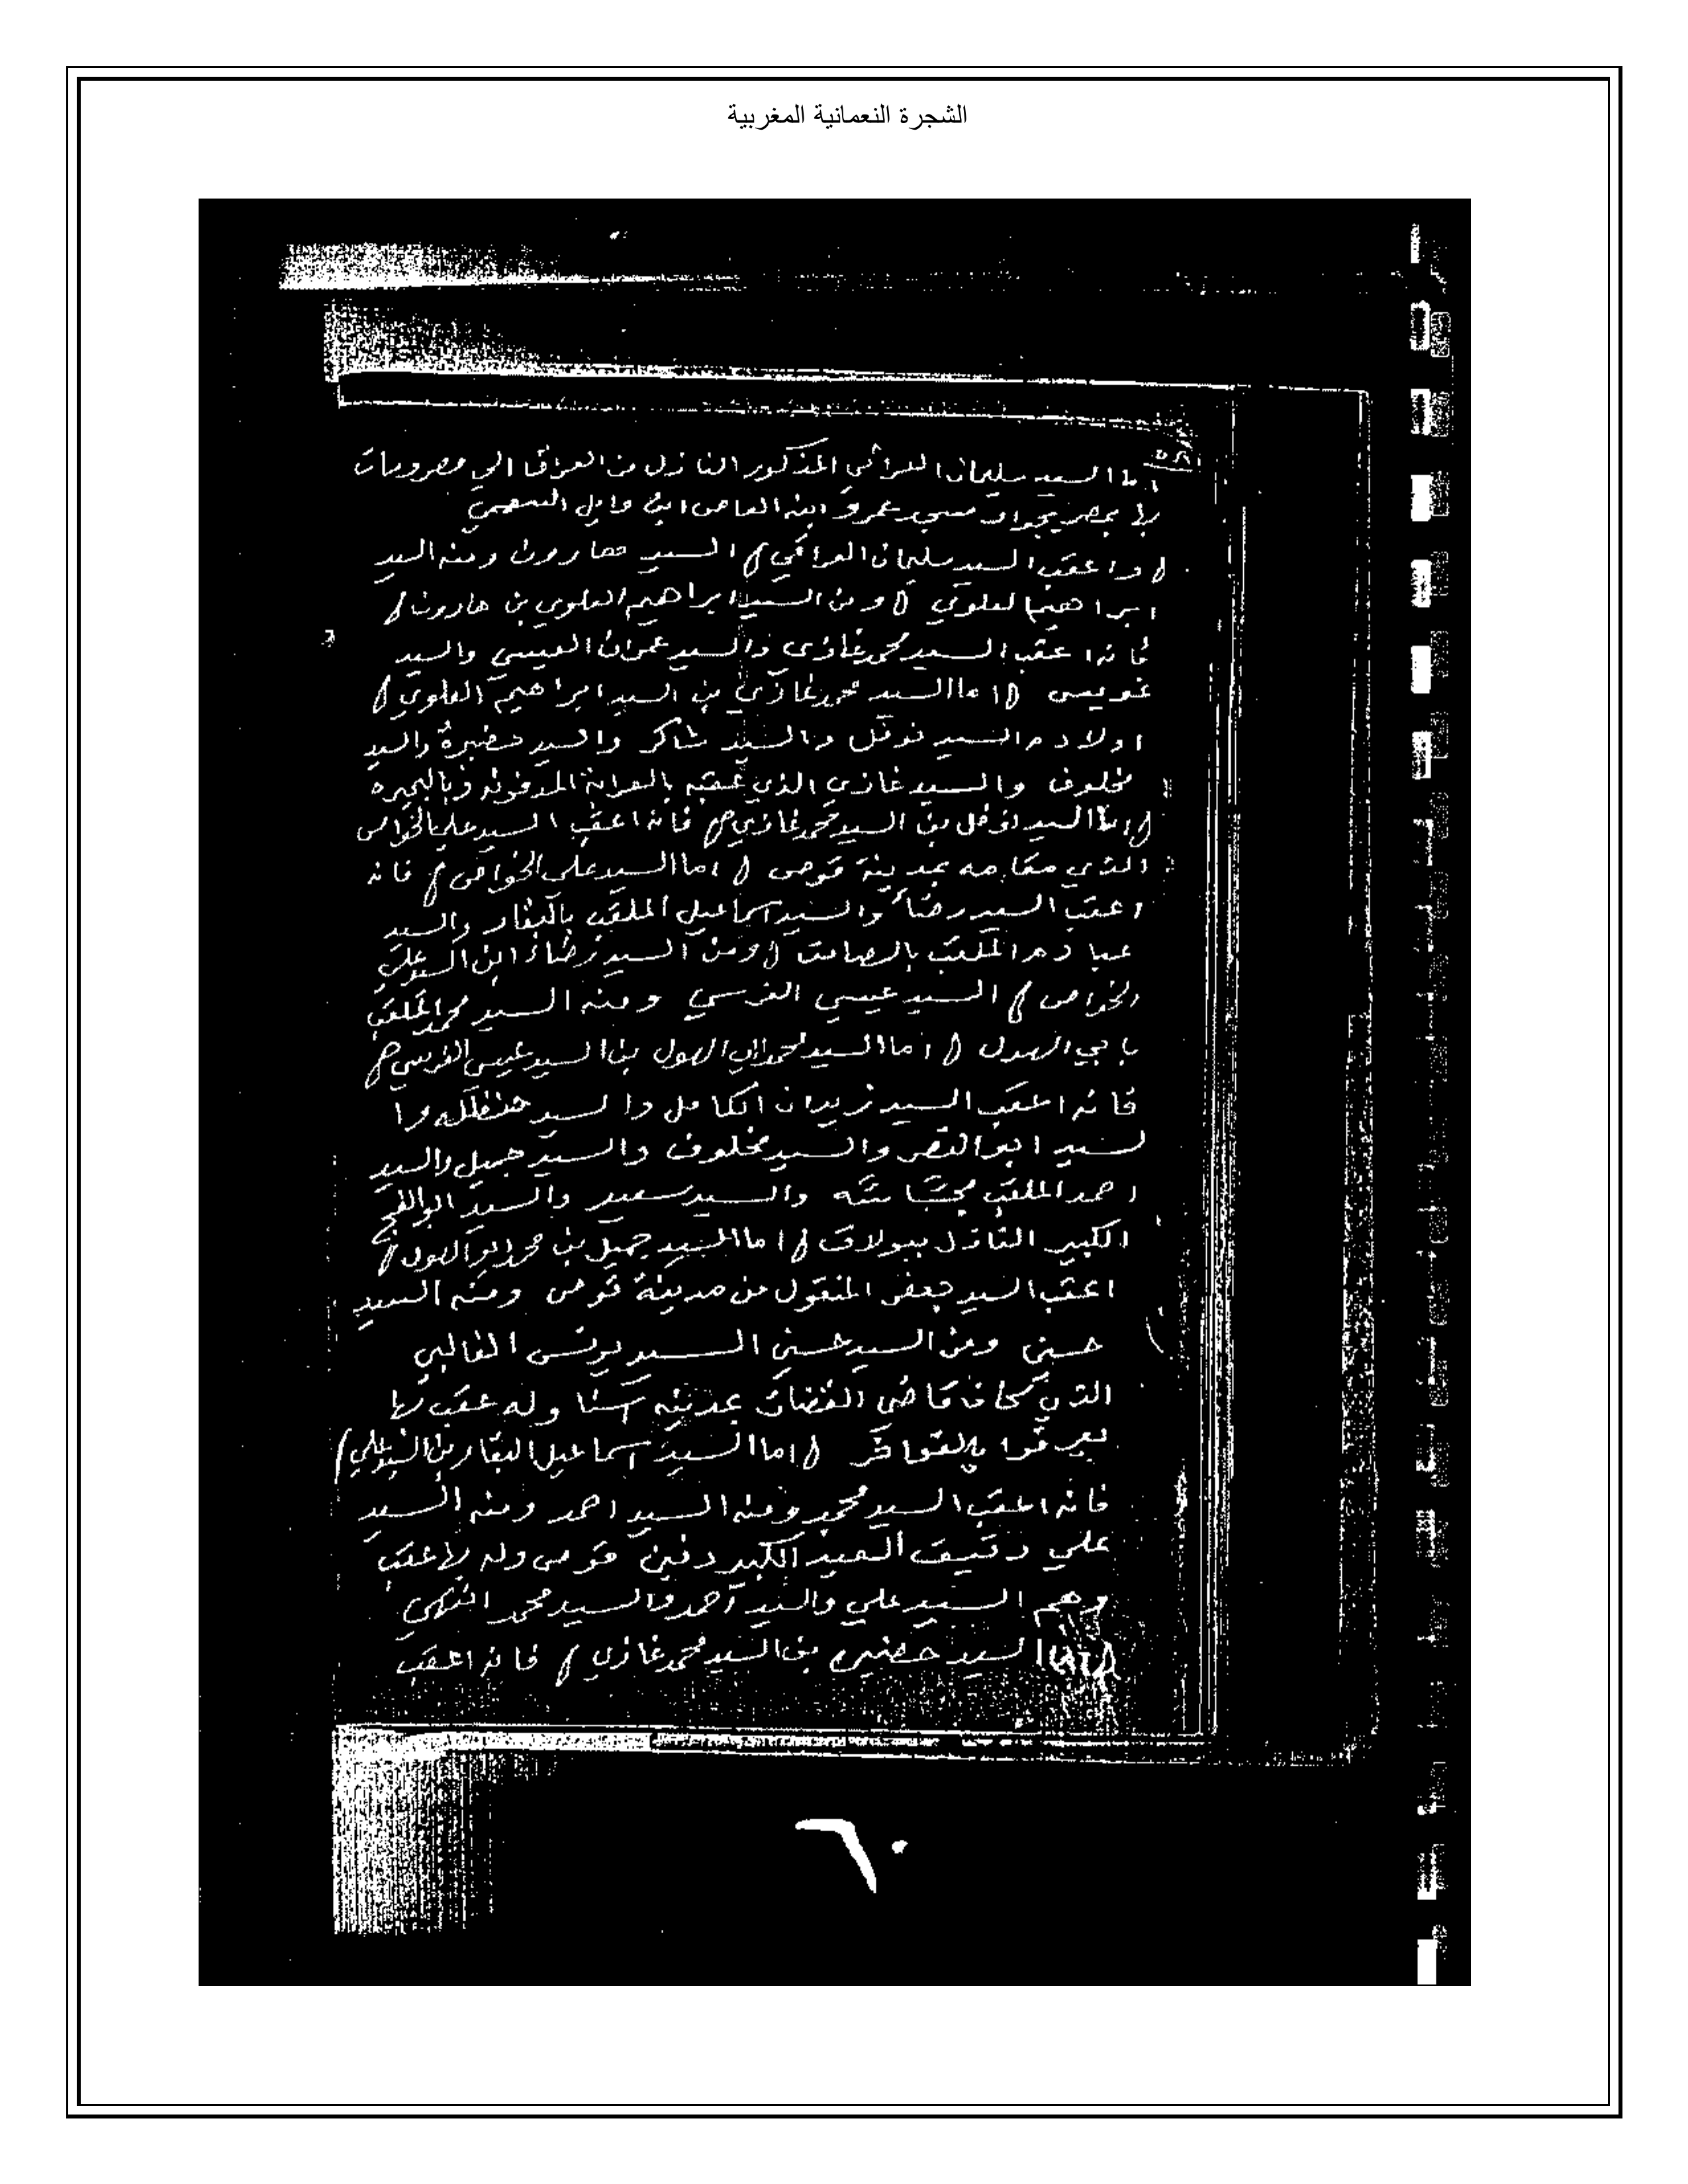 الشجرة النعمانية المغربية
اما السيد سليمان العراقي المذكور النازل من العراق الي مصر ومات
بها بمصر بجوار مسجد عمرو ابنه العاص ابن وايل السهمي
واعقب السيد سليمان العراقي السيد هارون ومنه السيد
ابراهيم العلوي ومن السيد ابراهيم العلوي بن هارون
فانه اعقب السيد محمد غازي والسيد عمران العيسي والسيد
اما السيد محمد غازي بن السيد ابراهيم العلوي
اولاده السيد نوفل والسيد شاكر والسيد حضيرة والسيد
مخلوف والسيد غازي الذي عقبه
اما السيد نوفل بن السيد محمد غازي فانه اعقب السيد علي الخواص
الذي مقامه بمدينة قوص اما السيد علي الخواص فانه
اعقب السيد رضا والسيد اسماعيل الملقب بالبقار والسيد
الملقب بالصامت ومن السيد رضا ابن السيد علي
الخواص السيد عيسي القرسي ومنه السيد محمد الملقب
بابي الهول اما السيد محمد ابي الهول بن السيد عيسي القرسي
فانه اعقب السيد زيدان الكامل والسيد حنظله وا
لسيد ابو النصر والسيد مخلوف والسيد جميل والسيد
احمد الملقب والسيد سعيد والسيد ابو الفتح
الكبير النازل ببولاق اما السيد جميل بن محمد ابو الهول
اعقب السيد جعفر المنقول من مدينة قوص ومنه السيد
حسين ومن السيد حسين السيد يونس الغالبي
الذي كان قاضي القضات بمدينه اسنا وله عقب بها
يعرفوا اما السيد اسماعيل البقار بن السيد علي
فانه اعقب السيد محمد ومنه السيد احمد ومنه السيد
علي دقيق العيد الكبير دفين قوص وله بها عقب
وهم السيد علي والسيد احمد والسيد محمد انتهي
اما السيد حضيره بن السيد محمد غازي فانه اعقب
٦٠